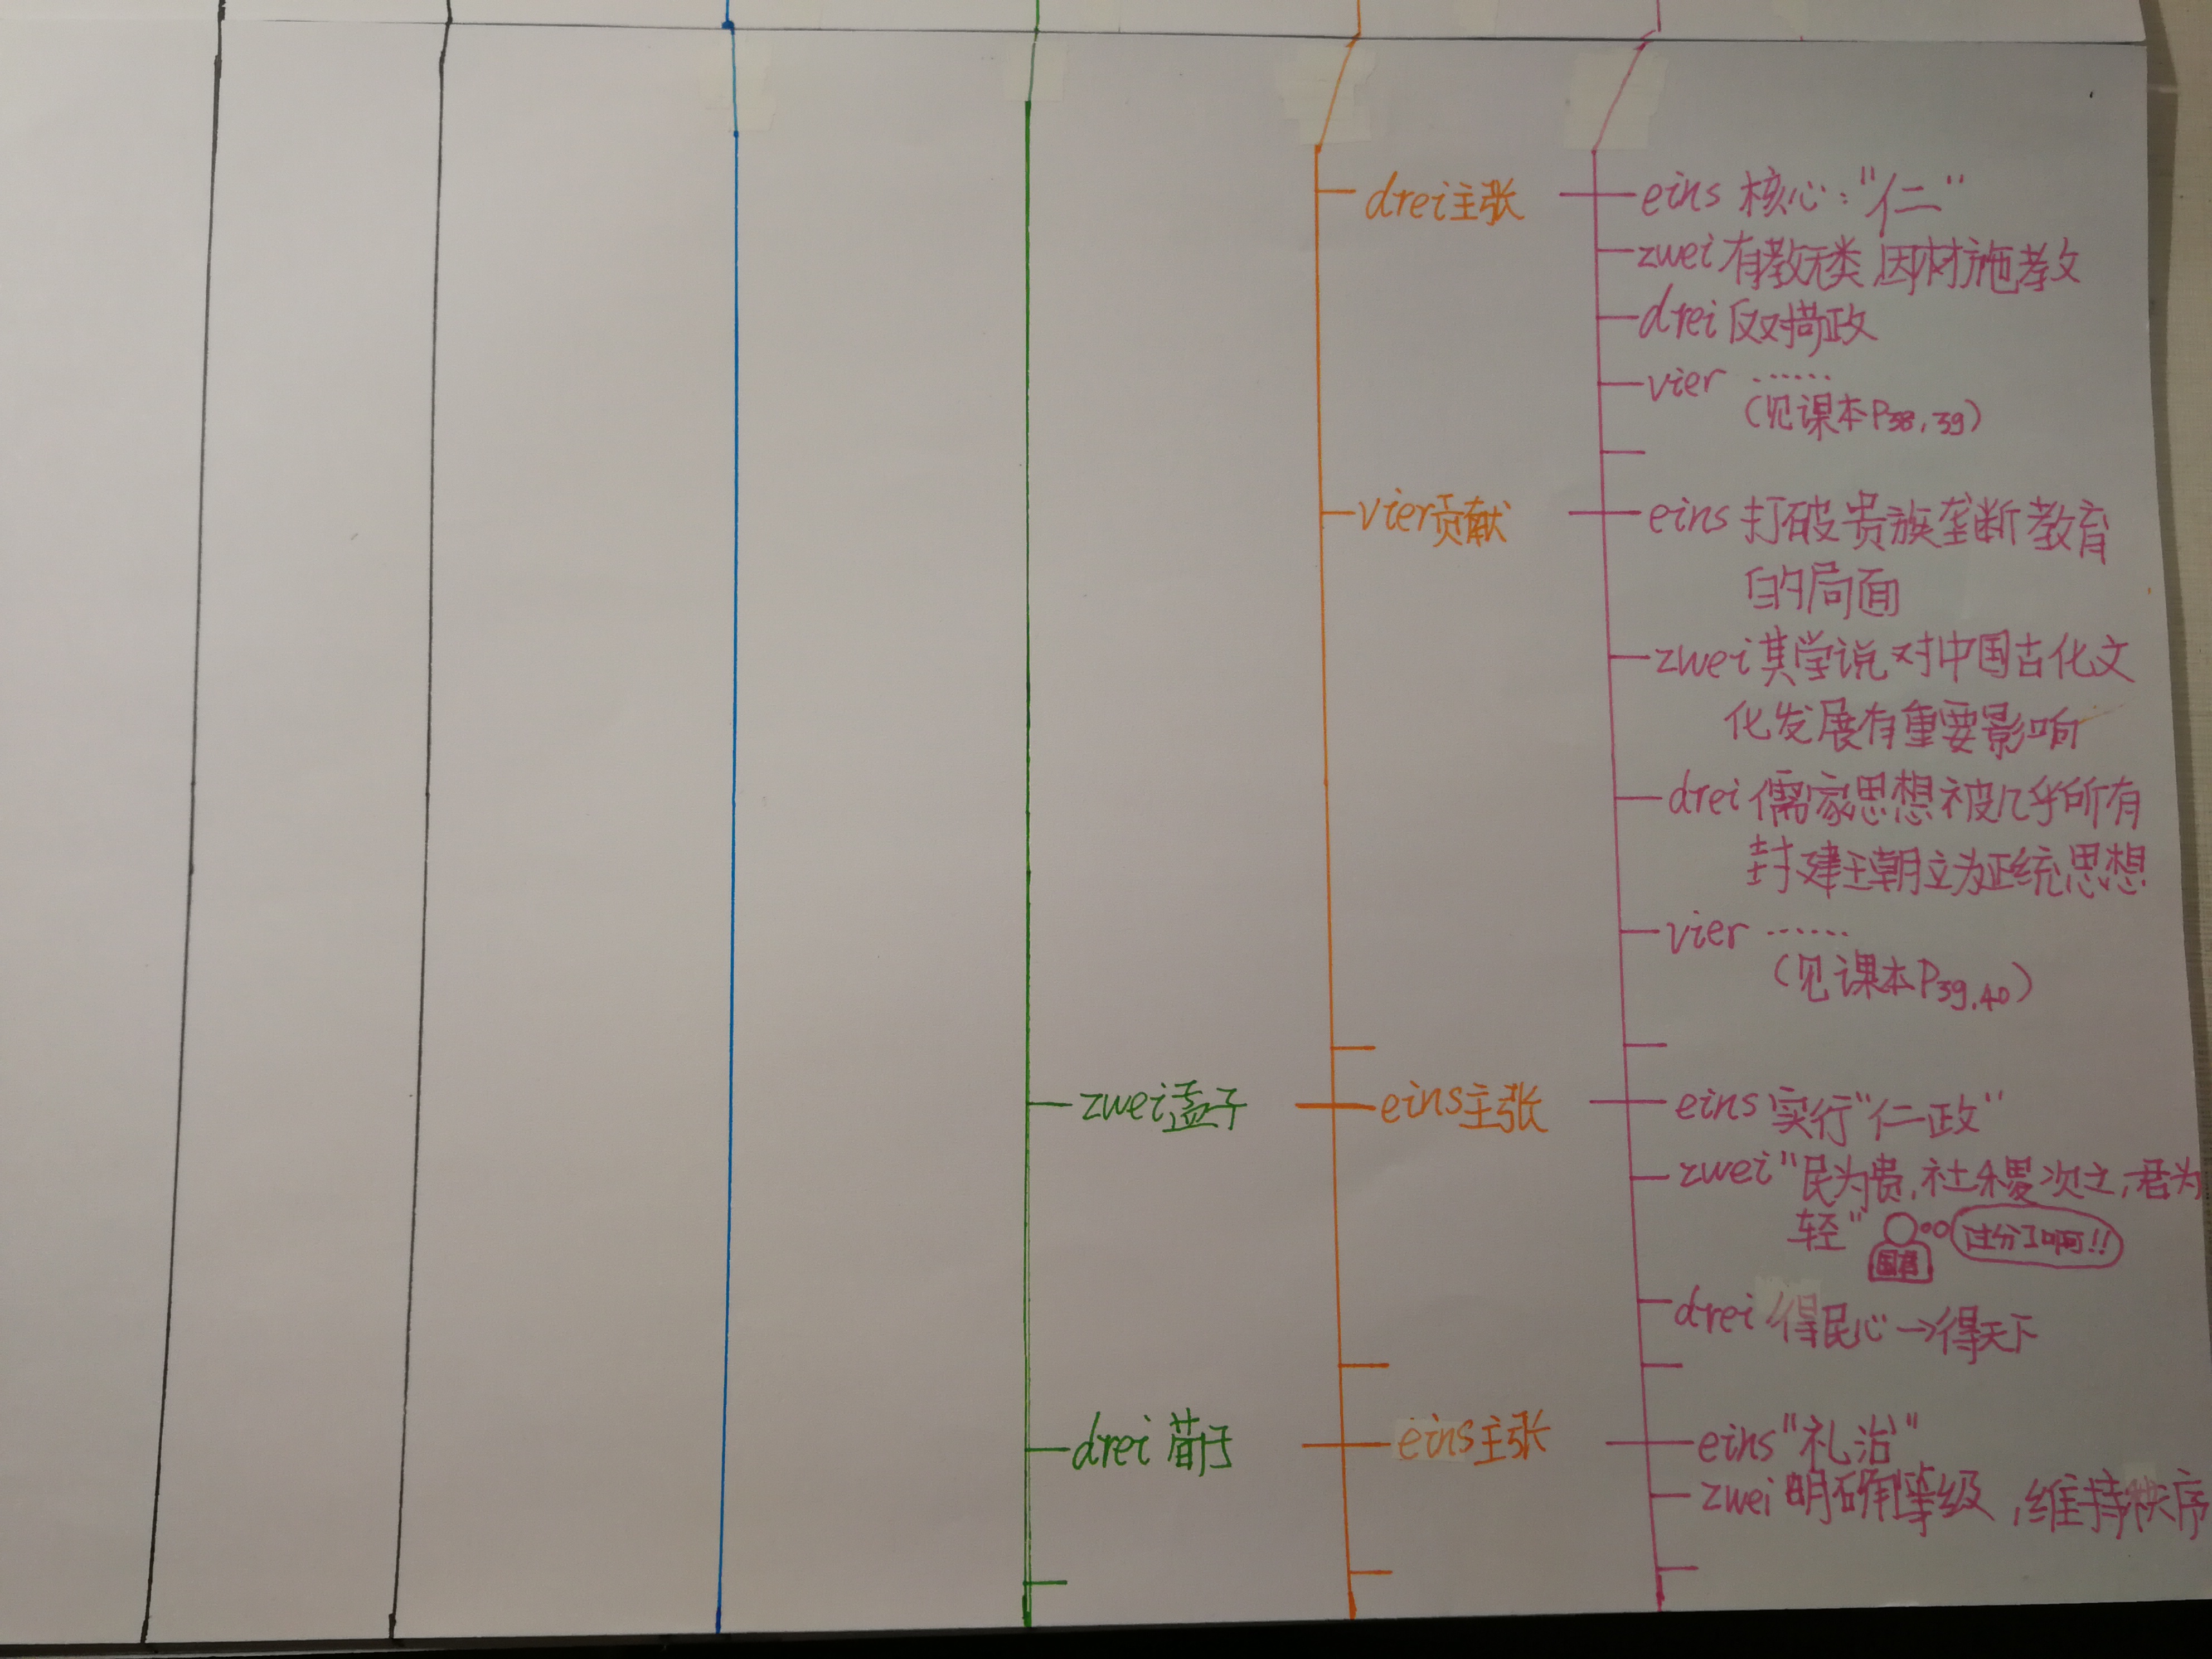 drei主张
eins 核心："仁"
zwei有教无类 因材施教
drei 反对苛政
vier ……
（见课本P38,39）
vier贡献
eins 打破贵族垄断教育
的局面
zwei其学说对中国古化文
化发展有重要影响
drei儒家思想被几乎所有
封建王朝立为正统思想
vier ……
（见课本P39,40）
zwei孟子
eins主张
eins 实行"仁政"
zwei"民为贵,社稷次之,君为
轻"
国君
过分了啊!!
drei 得民心→得天下
drei 荀子
eins主张
eins"礼治"
zwei 明确等级,维持秩序